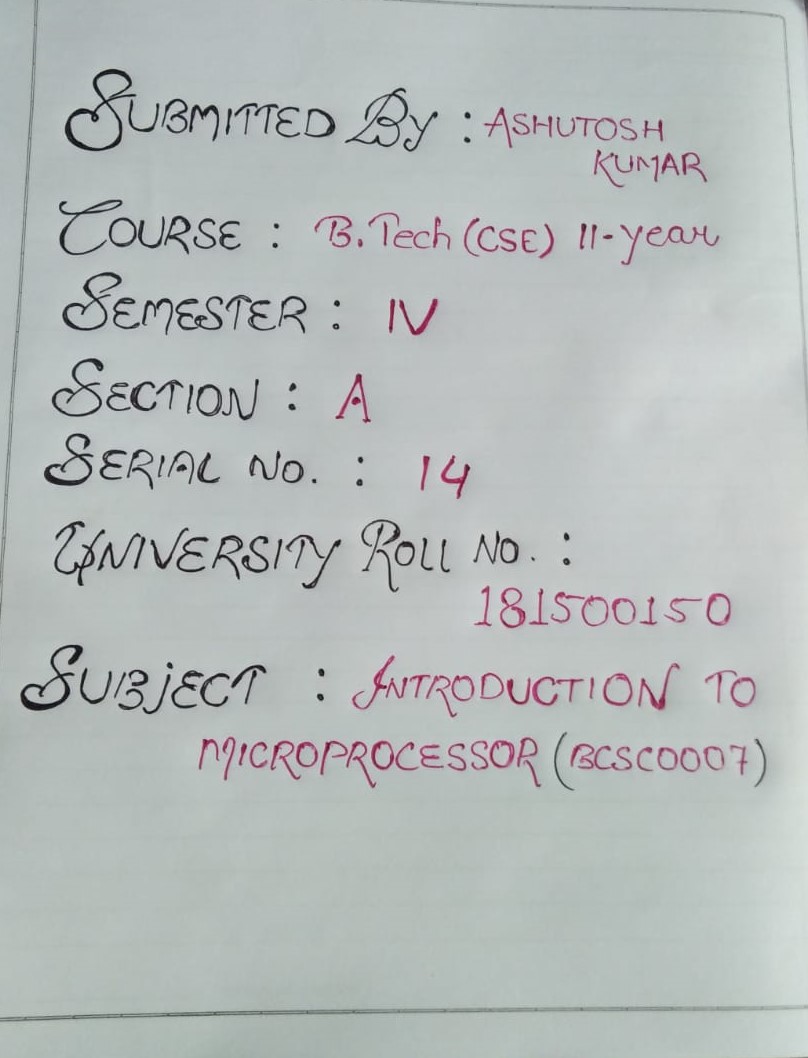 SUBMITTED BY : ASHUTOSH
KUMAR
COURSE : B.Tech (CSE) II-year
SEMESTER : IV
SECTION : A
SERIAL NO. : 14
UNIVERSITY ROLL NO. :
181500150
SUBJECT : INTRODUCTION TO
MICROPROCESSOR (BCSC0007)